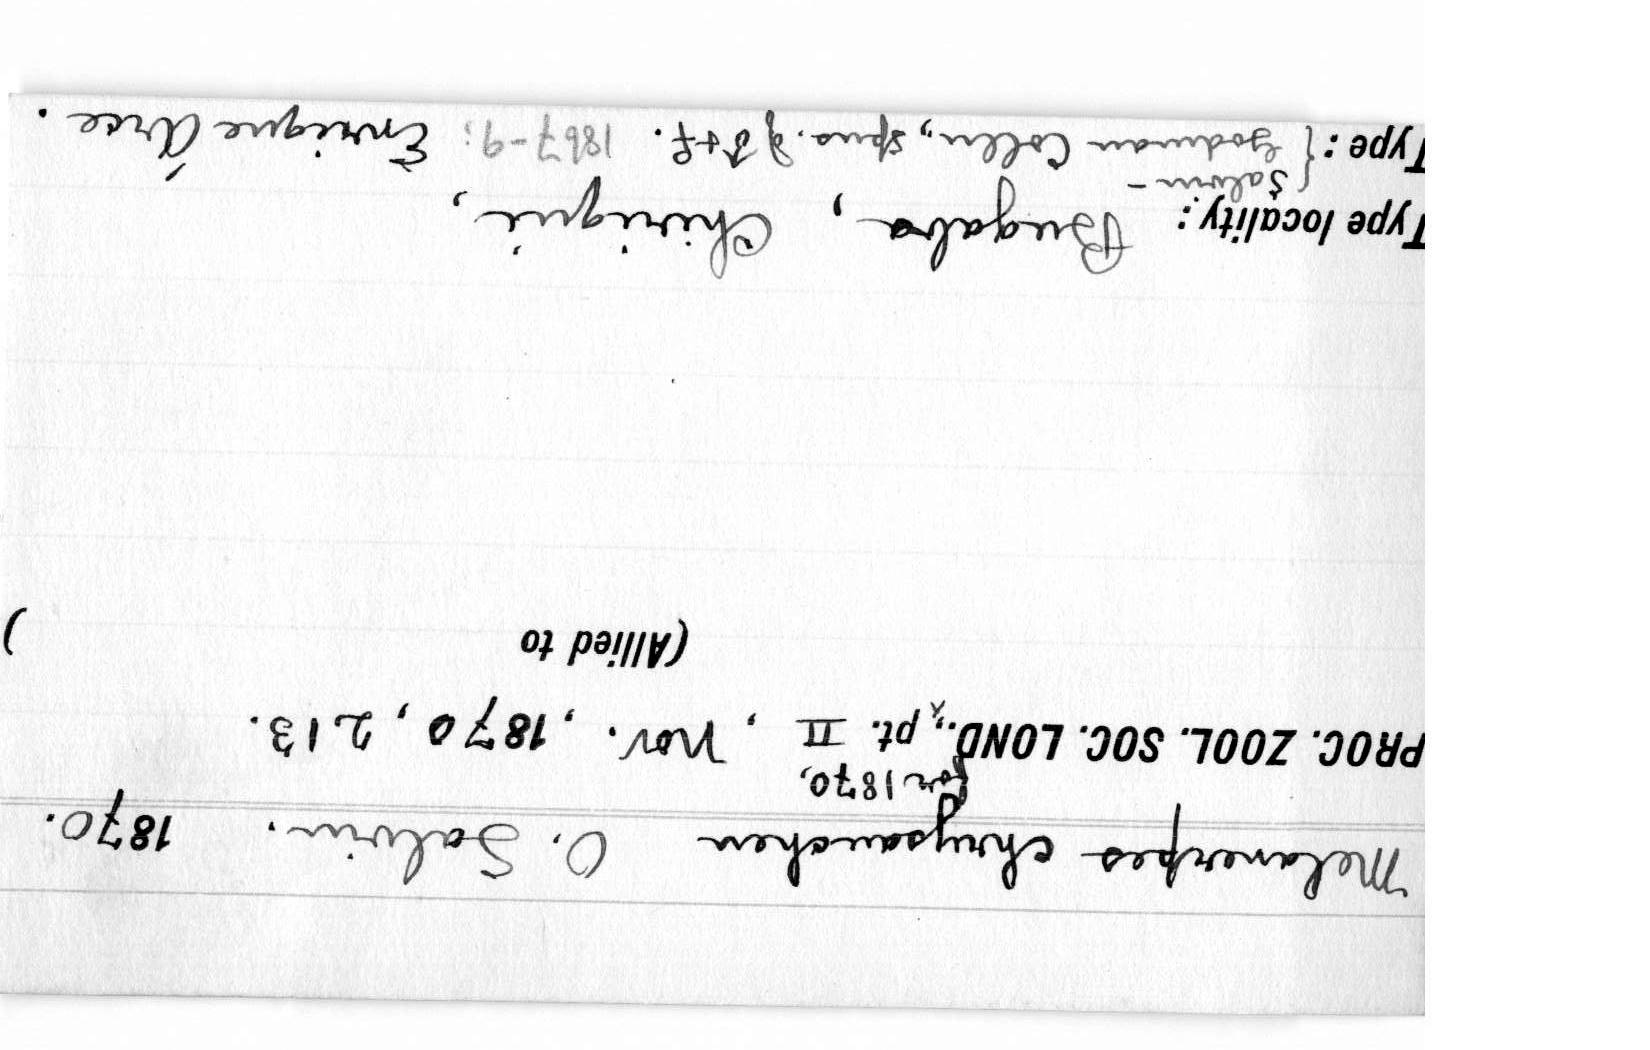 Melanerpes chrysauchen O. Salvin. 1870.
for 1870,
PROC. ZOOL. SOC. LOND., pt. II, Nov., 1870, 213.
(Allied to )
Type locality: Bugaba, Chiriqui,
Salvin-
Type: { Godman Colln., spns. ♂ + ♀. 1867-9; Enrique Arce.